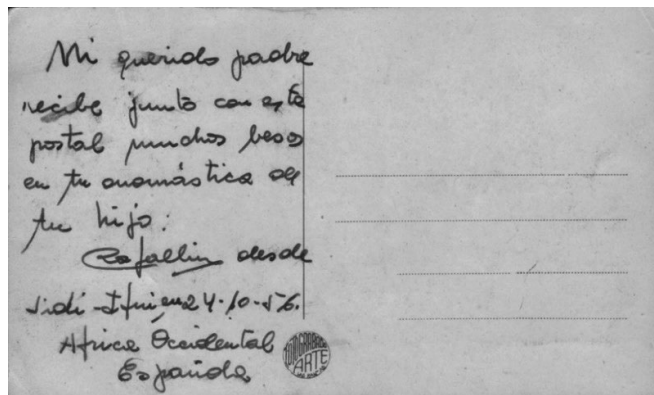 Mi querido padre
recibe junto con esta
postal muchos besos
en tu onomástica de
tu hijo:
Rafaelin desde
Sidi-Ifni en 24-10-56.
Africa Occidental
Española
ARTE